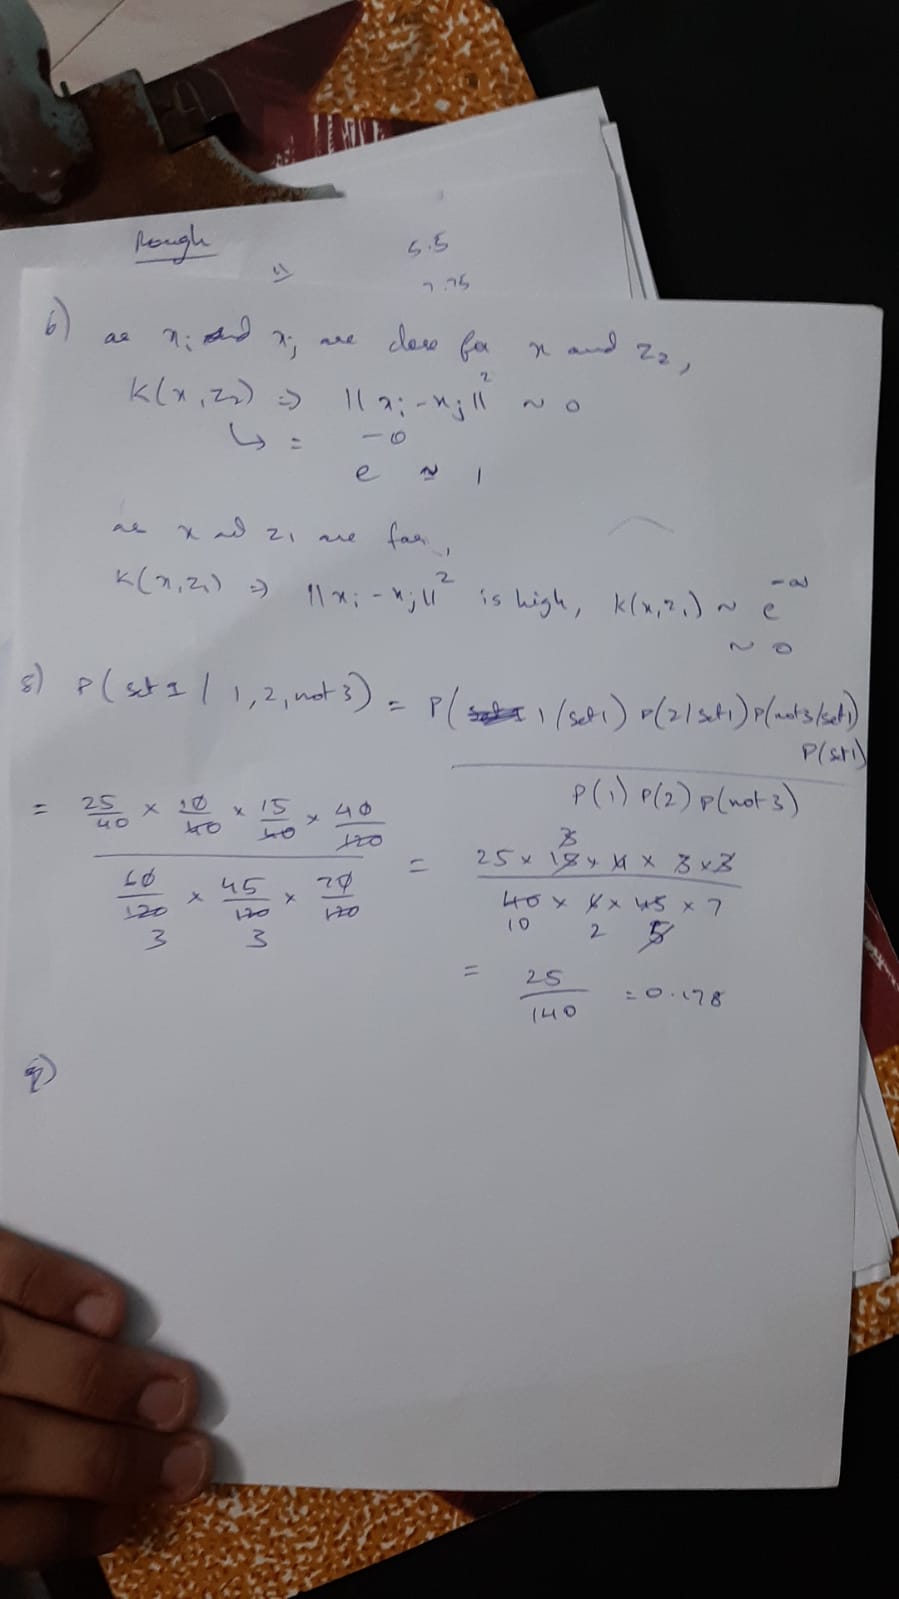 Rough
5.5
7.75
6) as xi and xj are close for x and z2,
K(x,z2) => ||xi-xj||² ~ 0
↳ = e^-0 ≈ 1
as x ad z1 are far,
K(x,z1) => ||xi-xj||² is high, K(x,z1) ~ e^-∞
~ 0
8) P(set 1 / 1,2,not 3) = P(1/set1) P(2/set1) P(not3/set1) P(set1)
P(1) P(2) P(not 3)
= 25/40 × 10/40 × 15/40 × 40/120
60/120 × 45/120 × 70/120
3 3
= 25 × 15 × 4 × 3 × 3
40 × 4 × 45 × 7
10 2 5
= 25/140 = 0.178
9)